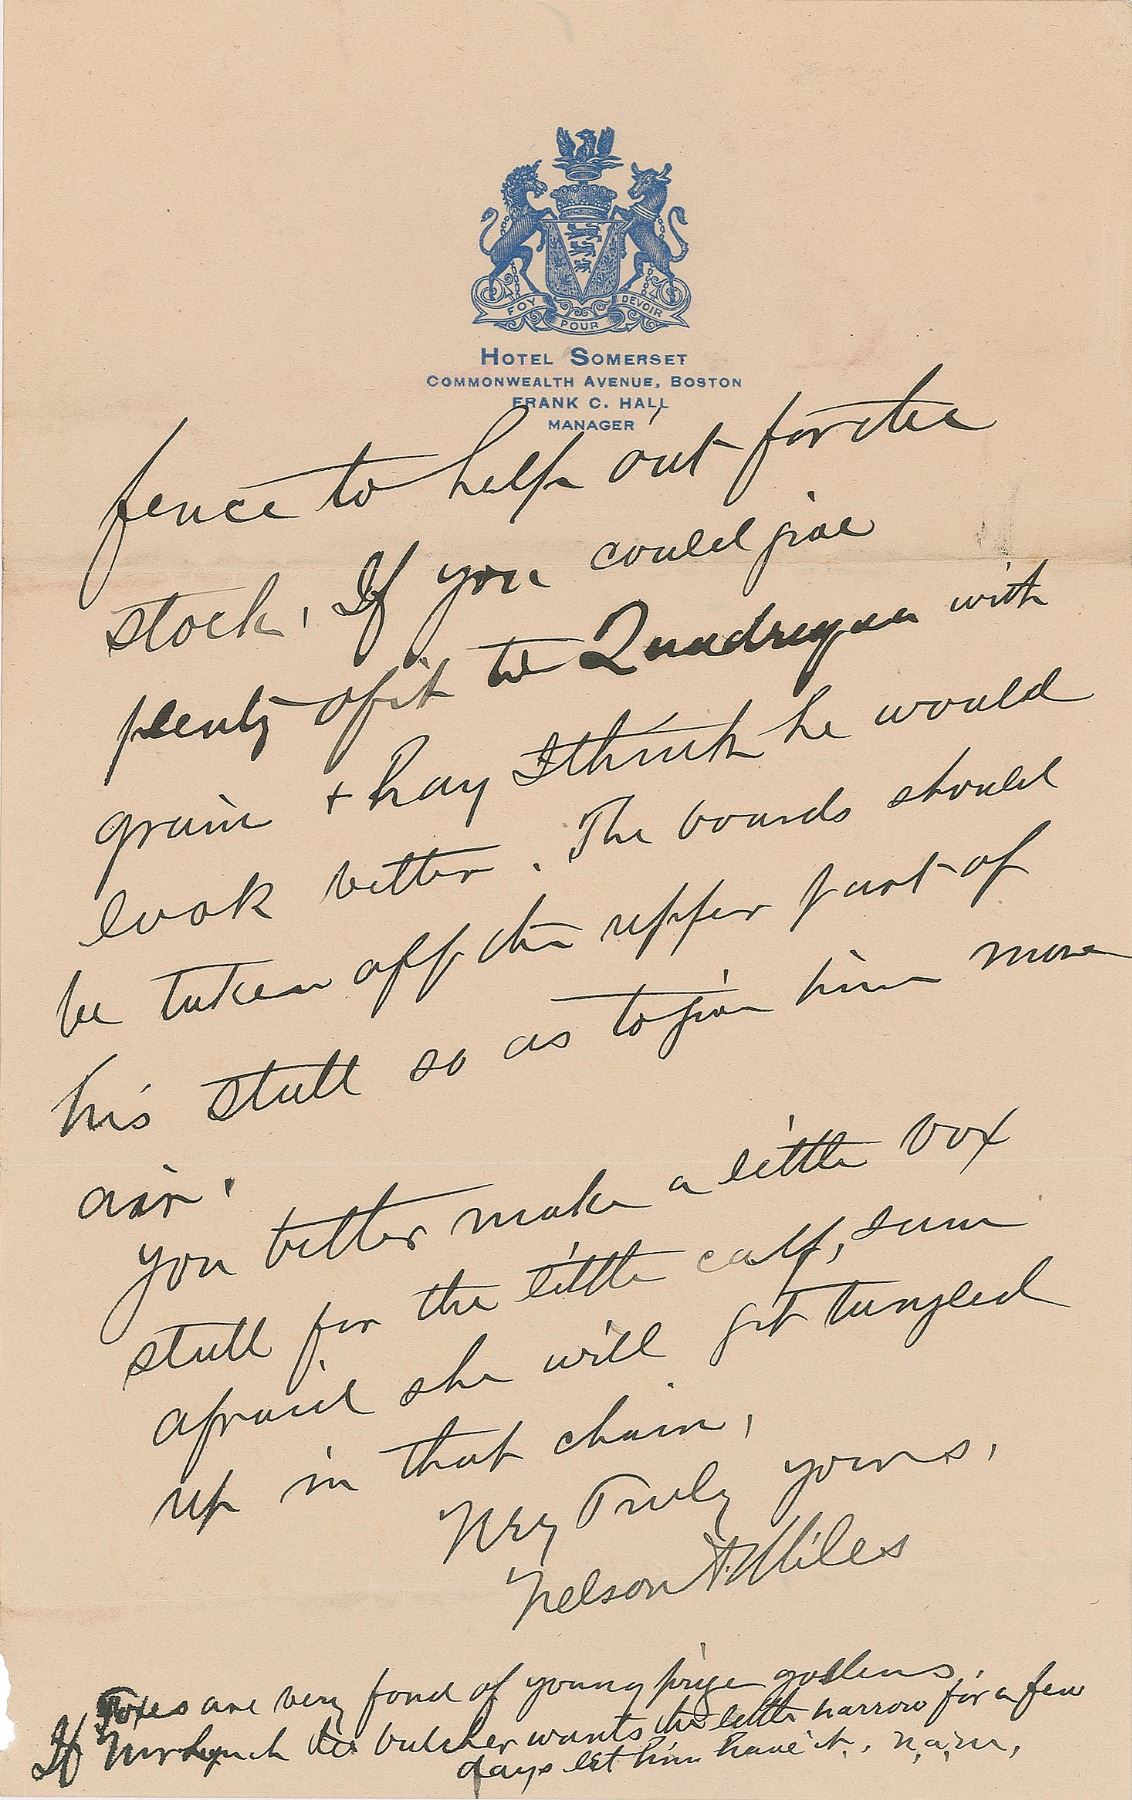 FOY POUR DEVOIR
HOTEL SOMERSET
COMMONWEALTH AVENUE, BOSTON
FRANK C. HALL
MANAGER
fence to help out for the
stock. If you could give
plenty of it to Quadregan with
grain + hay I think he would
look better. The boards should
be taken off the upper part of
his stall so as to give him more
air.
You better make a little box
stall for the little calf, I am
afraid she will get tangled
up in that chain.
Very Truly yours,
Nelson A. Miles
Foxes are very fond of young
If Mr Lynch the butcher wants the little harrow for a few
days let him have it. N.A.M.